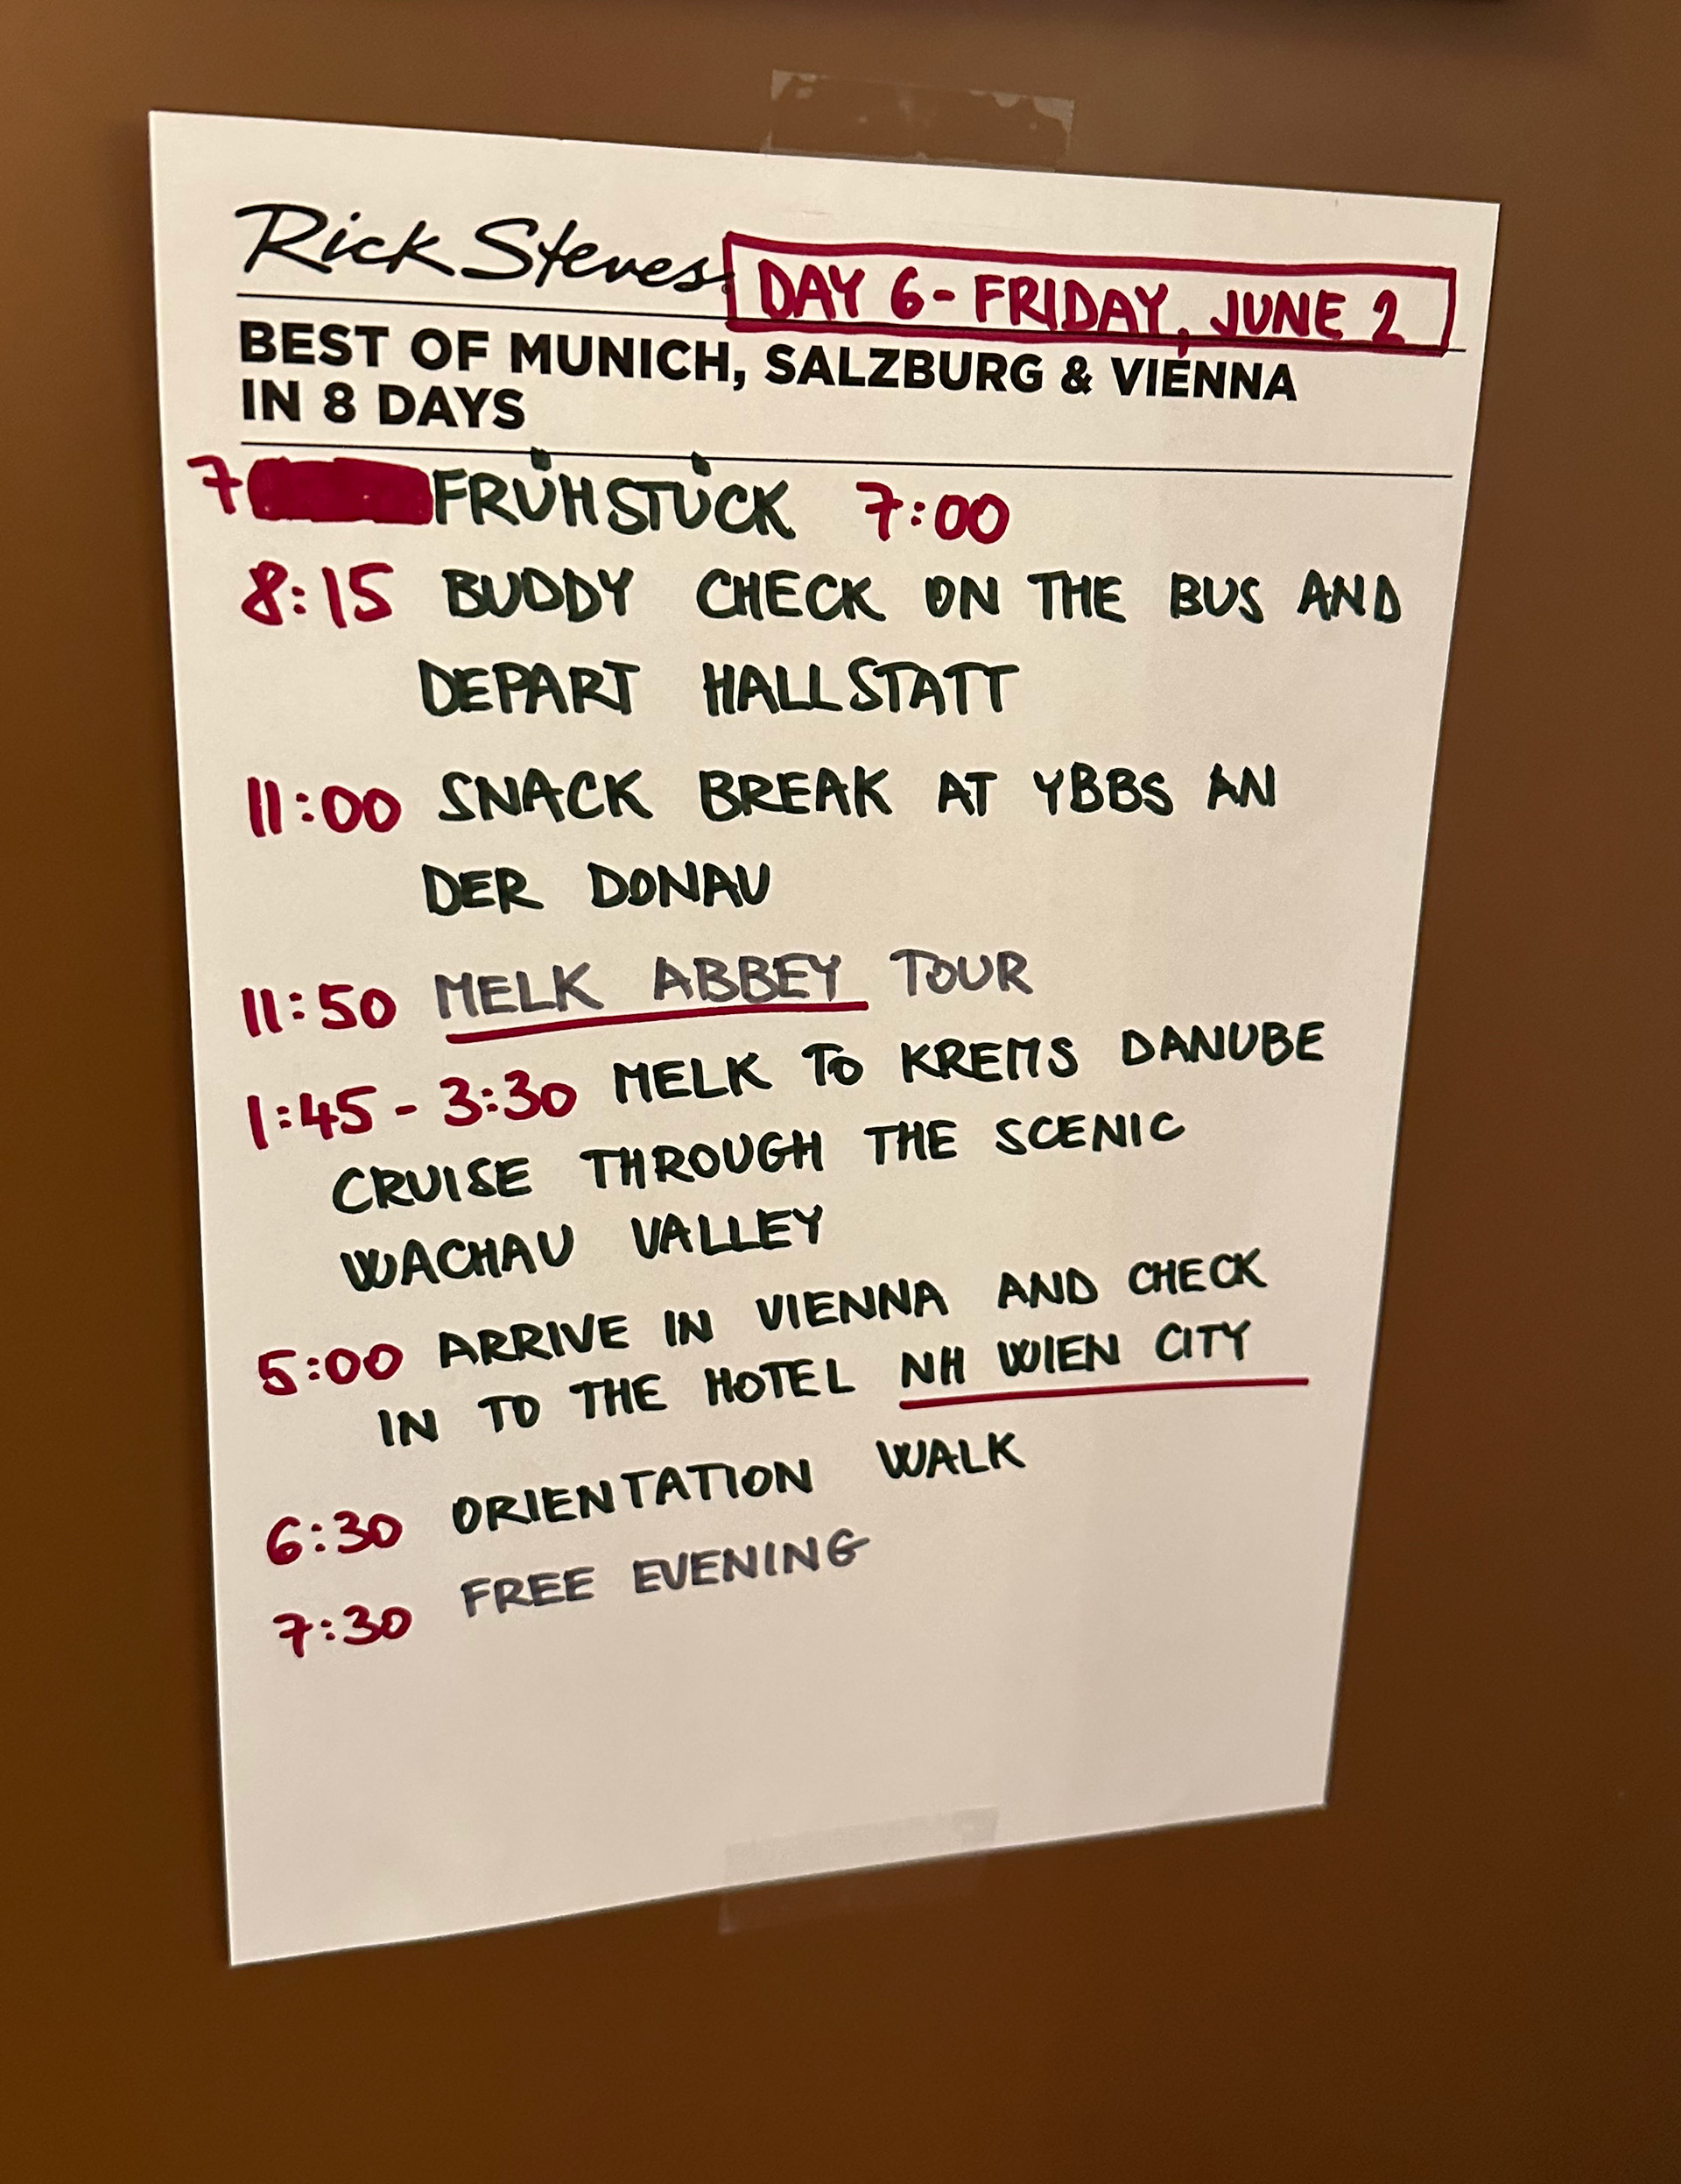 Rick Steves
DAY 6 - FRIDAY, JUNE 2
BEST OF MUNICH, SALZBURG & VIENNA
IN 8 DAYS
7 FRÜHSTÜCK 7:00
8:15 BUDDY CHECK ON THE BUS AND
DEPART HALLSTATT
11:00 SNACK BREAK AT YBBS AN
DER DONAU
11:50 MELK ABBEY TOUR
1:45 - 3:30 MELK TO KREMS DANUBE
CRUISE THROUGH THE SCENIC
WACHAU VALLEY
5:00 ARRIVE IN VIENNA AND CHECK
IN TO THE HOTEL NH WIEN CITY
6:30 ORIENTATION WALK
7:30 FREE EVENING